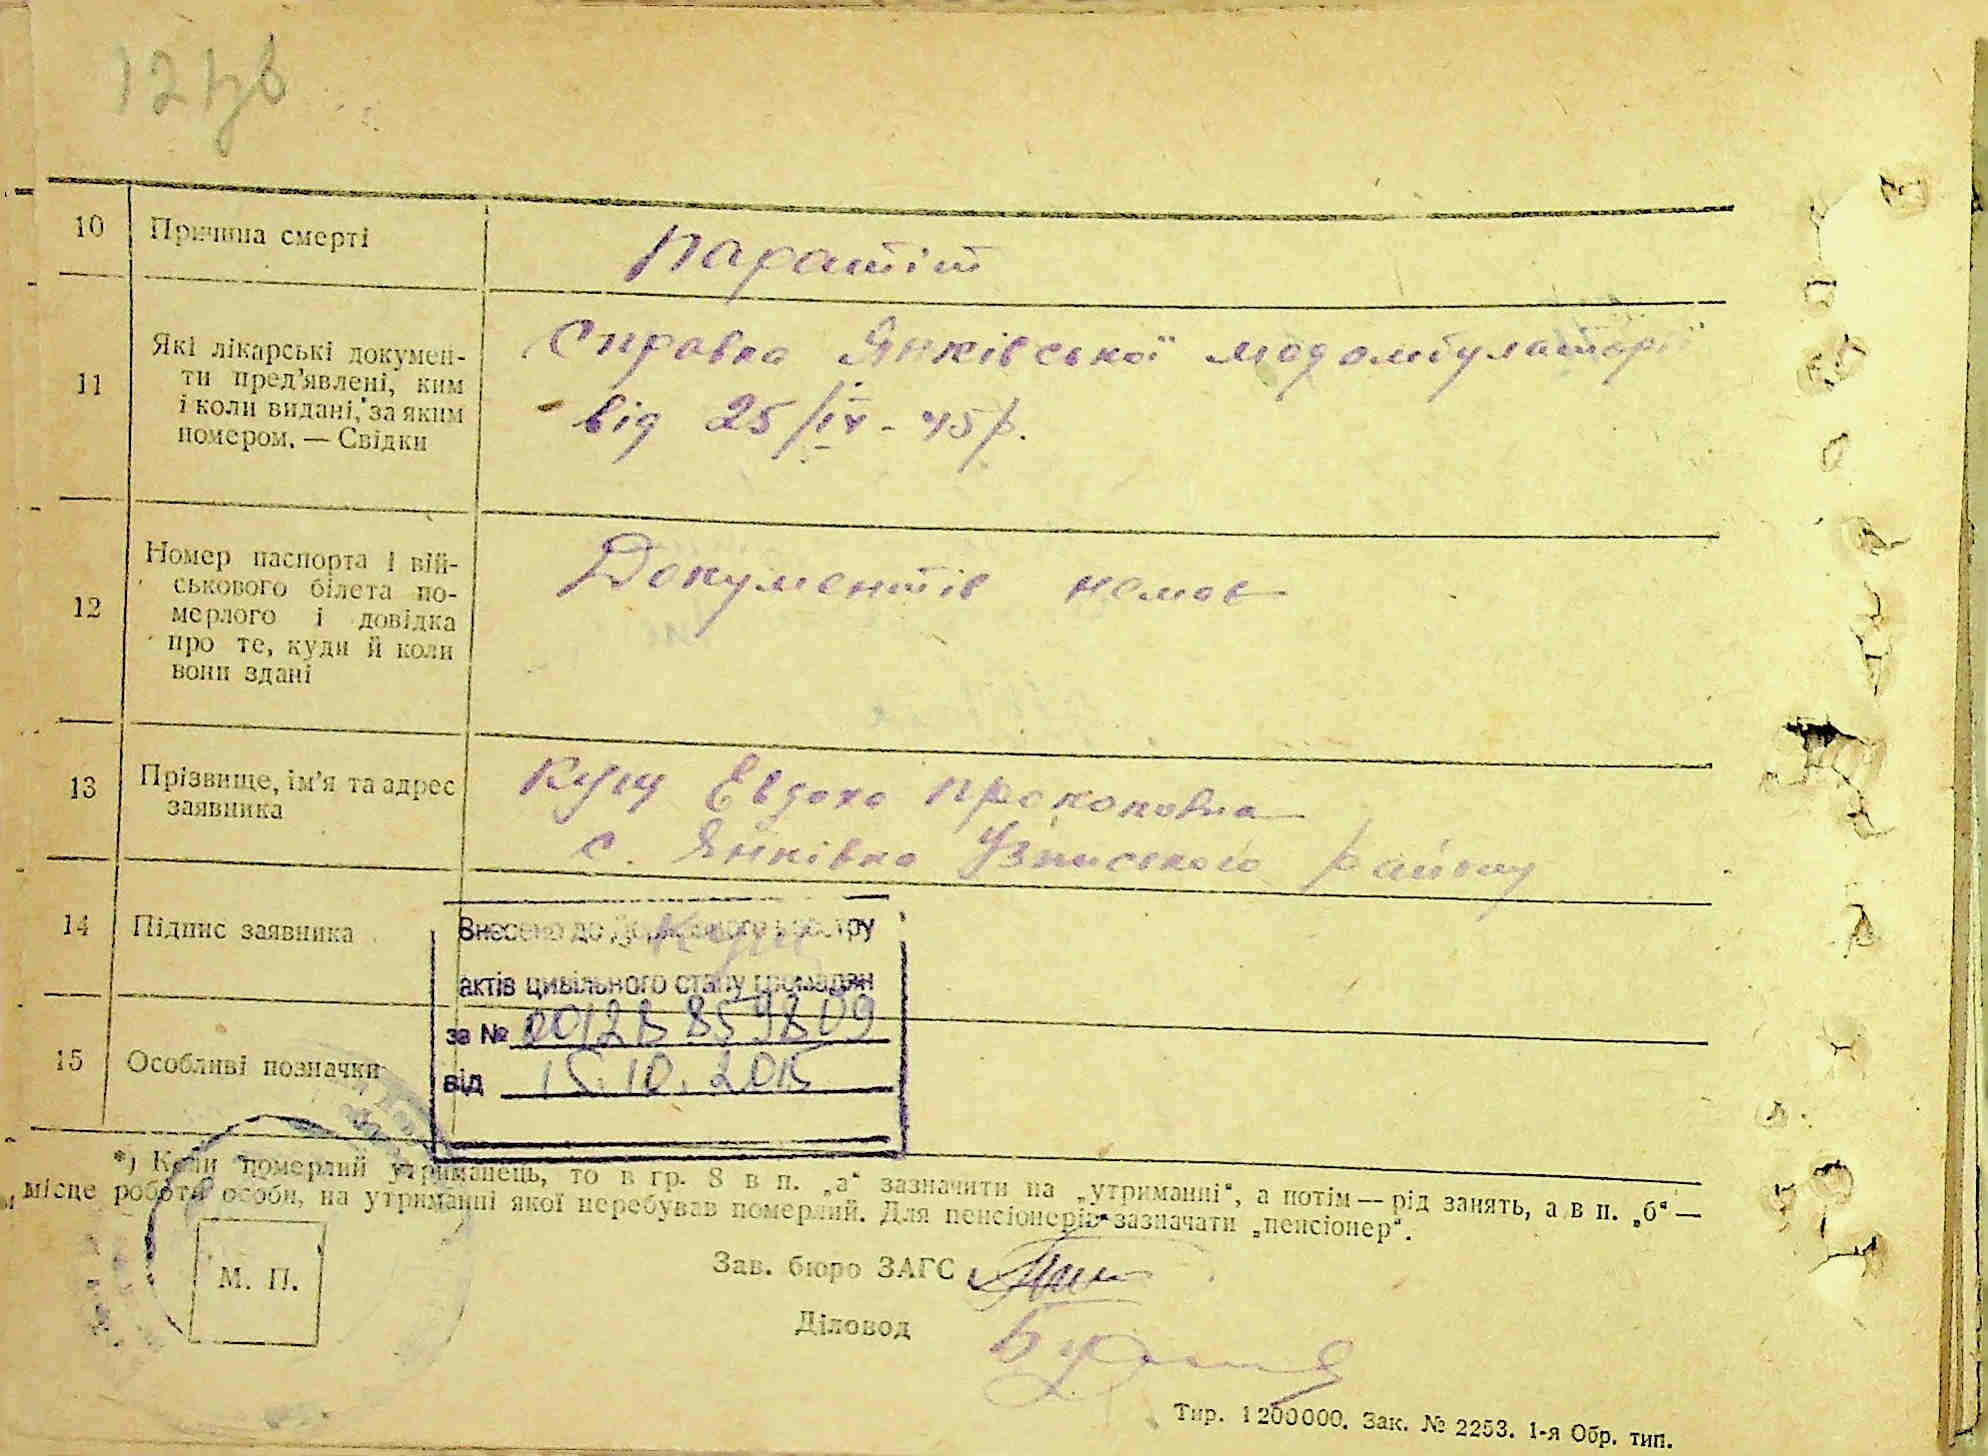 12
10 Причина смерті Паратіт
11 Які лікарські докумен-
ти пред'явлені, ким
і коли видані, за яким
номером. — Свідки
Справка Янківської медамбулаторії
від 25/IV - 45 р.
12 Номер паспорта і вій-
ськового білета по-
мерлого і довідка
про те, куди й коли
вони здані
Документів немає
13 Прізвище, ім'я та адрес
заявника
Куш Евдоха Прокоповна
с. Янківка Узинського району
14 Підпис заявника
Внесено до Державного реєстру
актів цивільного стану громадян
за №
від 15.10.2015
15 Особливі позначки
*) Коли померлий утриманець, то в гр. 8 в п. „а“ зазначити на „утриманні“, а потім — рід занять, а в п. „б“ —
місце роботи особи, на утриманні якої перебував померлий. Для пенсіонерів зазначати „пенсіонер“.
М. П.
Зав. бюро ЗАГС
Діловод
Тир. 1200000. Зак. № 2253. 1-я Обр. тип.